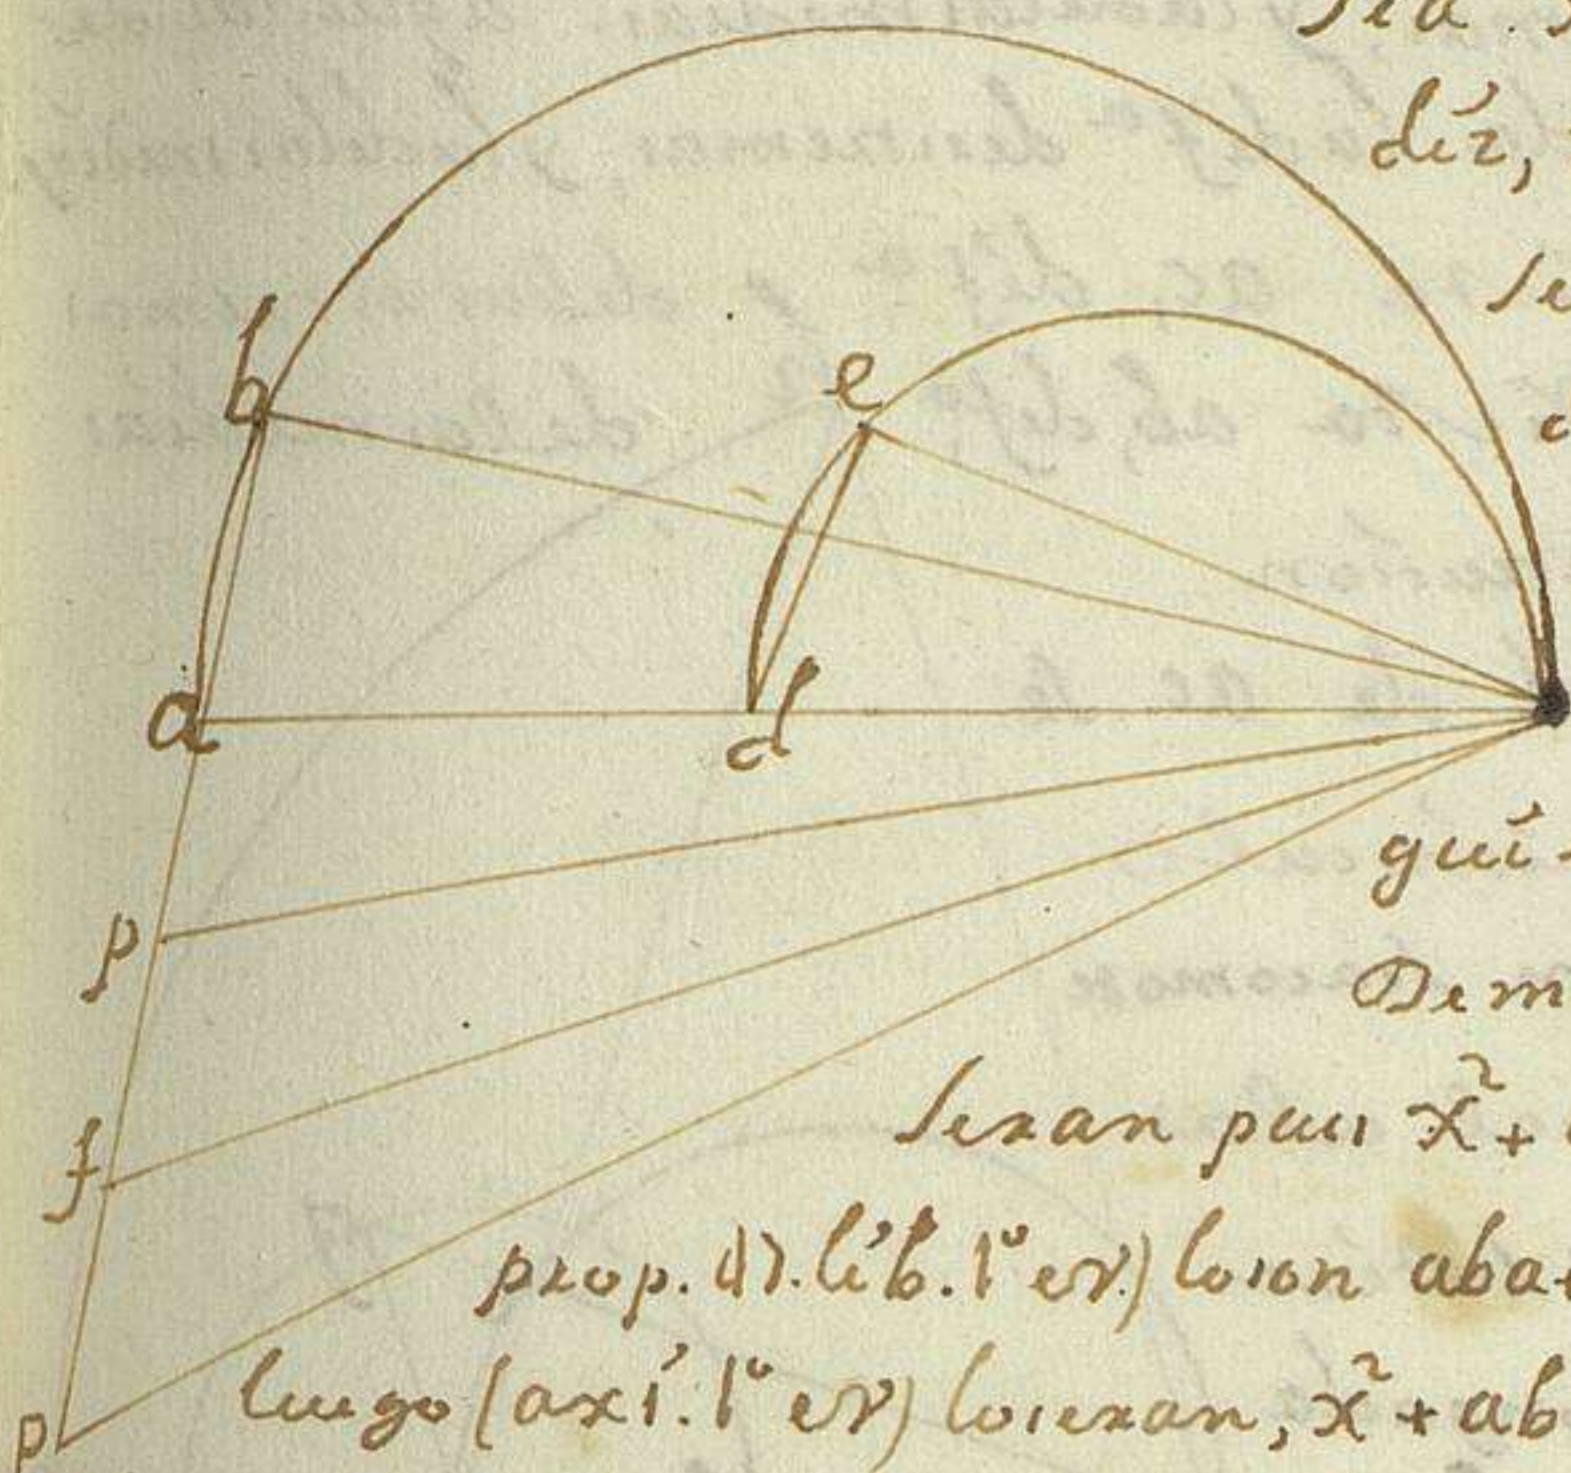 sea
díz,
se
b
e
a
d
guí-
p
Dem
seran pues x² + 
f
prop. 47. lib. 1º ev.) loson aba+
luego (axí. 1º ev) loseran, x² + ab
p